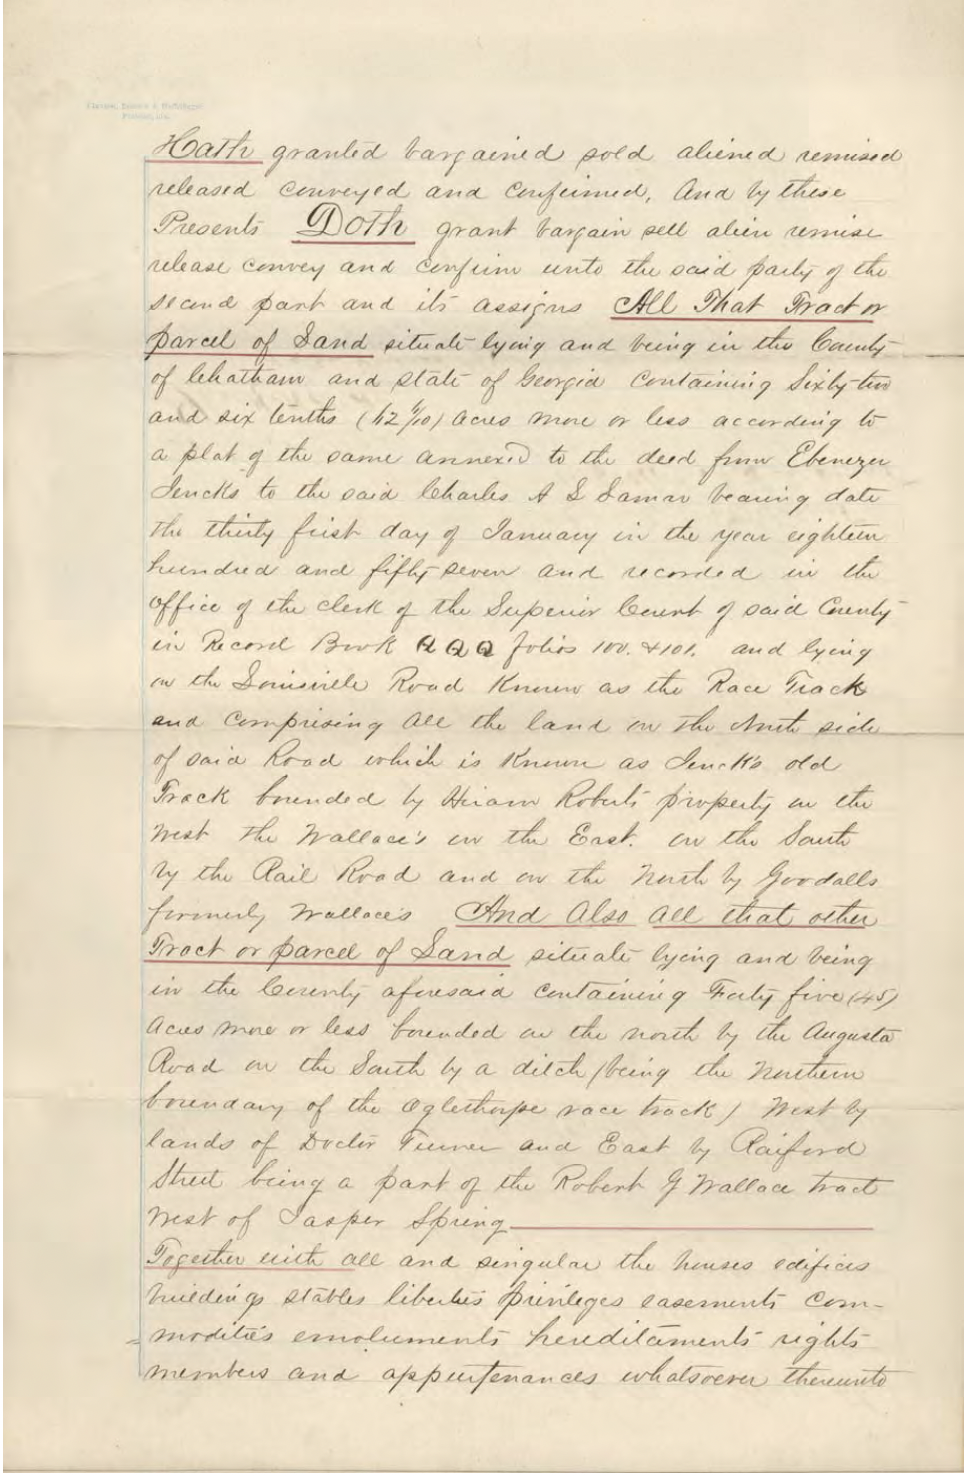 Hath granted bargained sold aliened remised
released conveyed and confirmed, And by these
Presents Doth grant bargain sell alien remise
release convey and confirm unto the said party of the
second part and its assigns All That Tract or
parcel of Land situate lying and being in the County
of Chatham and state of Georgia containing Sixty-two
and six tenths (62 6/10) Acres more or less according to
a plat of the same annexed to the deed from Ebenezer
Jencks to the said Charles A L Lamar bearing date
the thirty first day of January in the year eighteen
hundred and fifty seven and recorded in the
Office of the clerk of the Superior Court of said County
in Record Book QQQ folios 100. & 101. and lying
on the Louisville Road Known as the Race Track
and comprising all the land on the North side
of said Road which is Known as Jenck's old
Track bounded by Hiram Roberts property on the
West the Wallace's on the East. on the South
by the Rail Road and on the North by Goodalls
formerly Wallace's And Also all that other
Tract or parcel of Land situate lying and being
in the County aforesaid containing Forty five (45)
Acres more or less bounded on the north by the Augusta
Road on the South by a ditch (being the Northern
boundary of the Oglethorpe race track) West by
lands of Doctor Turner and East by Raiford
Street being a part of the Robert G Wallace tract
West of Jasper Spring
Together with all and singular the houses edifices
buildings stables liberties privileges easements com-
modities emoluments hereditaments rights
members and appurtenances whatsoever thereunto